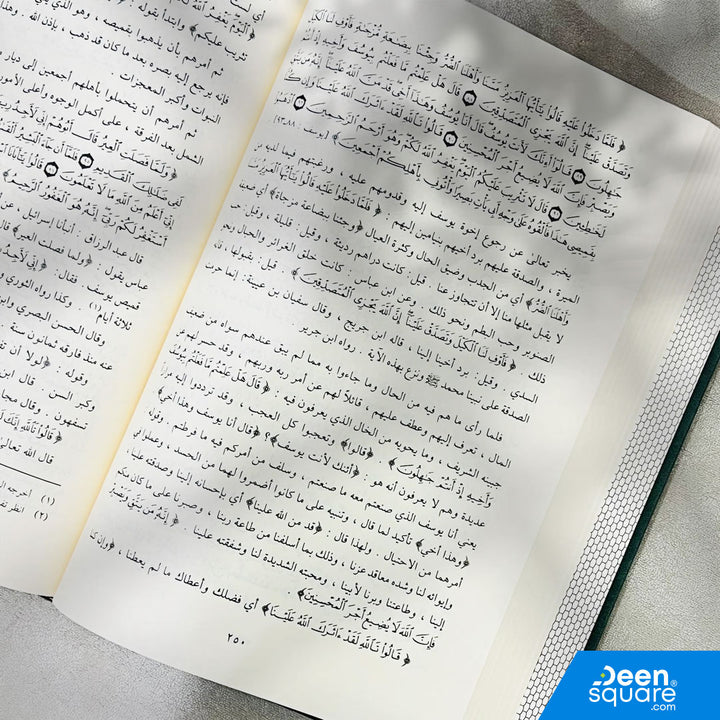 ﴿ فَلَمَّا دَخَلُوا عَلَيْهِ قَالُوا يَٰٓأَيُّهَا الْعَزِيزُ مَسَّنَا وَأَهْلَنَا الضُّرُّ وَجِئْنَا بِبِضَٰعَةٍ مُزْجَىٰةٍ فَأَوْفِ لَنَا الْكَيْلَ
وَتَصَدَّقْ عَلَيْنَا إِنَّ اللَّهَ يَجْزِي الْمُتَصَدِّقِينَ قَالَ هَلْ عَلِمْتُم مَّا فَعَلْتُم بِيُوسُفَ وَأَخِيهِ إِذْ أَنتُمْ
جَٰهِلُونَ قَالُوا أَءِنَّكَ لَأَنتَ يُوسُفُ قَالَ أَنَا يُوسُفُ وَهَٰذَا أَخِي قَدْ مَنَّ اللَّهُ عَلَيْنَا إِنَّهُ مَن يَتَّقِ
وَيَصْبِرْ فَإِنَّ اللَّهَ لَا يُضِيعُ أَجْرَ الْمُحْسِنِينَ قَالُوا تَاللَّهِ لَقَدْ ءَاثَرَكَ اللَّهُ عَلَيْنَا وَإِن كُنَّا
لَخَٰطِئِينَ قَالَ لَا تَثْرِيبَ عَلَيْكُمُ الْيَوْمَ يَغْفِرُ اللَّهُ لَكُمْ وَهُوَ أَرْحَمُ الرَّاحِمِينَ اذْهَبُوا
بِقَمِيصِي هَٰذَا فَأَلْقُوهُ عَلَىٰ وَجْهِ أَبِي يَأْتِ بَصِيرًا وَأْتُونِي بِأَهْلِكُمْ أَجْمَعِينَ ﴾ [يوسف: ٨٨-٩٣].
يخبر تعالى عن رجوع إخوة يوسف إليه وقدومهم عليه ، ورغبتهم فيما لديه من
الميرة ، والصدقة عليهم برد أخيهم بنيامين إليهم . ﴿ فَلَمَّا دَخَلُوا عَلَيْهِ قَالُوا يَٰٓأَيُّهَا الْعَزِيزُ مَسَّنَا
وَأَهْلَنَا الضُّرُّ ﴾ أي من الجدب وضيق الحال وكثرة العيال ﴿ وجئنا ببضاعة مزجاة ﴾ أي ضعيفة
لا يقبل مثلها منا إلا أن تتجاوز عنا . قيل : كانت دراهم رديئة ، وقيل : قليلة ، وقيل : حب
الصنوبر وحب البطم ونحو ذلك . وعن ابن عباس : كانت خلق الغرائر والحبال ونحو
ذلك . ﴿ فَأَوْفِ لَنَا الْكَيْلَ وَتَصَدَّقْ عَلَيْنَا إِنَّ اللَّهَ يَجْزِي الْمُتَصَدِّقِينَ ﴾ قيل : بقبولها ، قاله
السدي . وقيل : برد أخينا إلينا ، قاله ابن جريج ، وقال سفيان بن عيينة : إنما حرمت
الصدقة على نبينا محمد ﷺ ونزع بهذه الآية . رواه ابن جرير .
فلما رأى ما هم فيه من الحال وما جاءوا به مما لم يبق عندهم سواه من ضعيف
المال ، تعرف إليهم وعطف عليهم ، قائلاً لهم عن أمر ربه وربهم ، وقد حسر لهم عن
جبينه الشريف ، وما يحويه من الخال الذي يعرفون فيه . ﴿ قَالَ هَلْ عَلِمْتُم مَّا فَعَلْتُم بِيُوسُفَ
وَأَخِيهِ إِذْ أَنتُمْ جَٰهِلُونَ ﴾ . ﴿قالوا﴾ وتعجبوا كل العجب ، وقد ترددوا إليه مراراً
عديدة وهم لا يعرفون أنه هو : ﴿أئنك لأنت يوسف﴾؟ ﴿قال أنا يوسف وهذا أخي﴾
يعني أنا يوسف الذي صنعتم معه ما صنعتم ، وسلف من أمركم فيه ما فرطتم . وقوله
﴿وهذا أخي﴾ تأكيد لما قال ، وتنبيه على ما كانوا أضمروا لهما من الحسد ، وعملوا في
أمرهما من الاحتيال . ولهذا قال : ﴿قد من الله علينا﴾ أي بإحسانه إلينا وصدقته علينا ،
وإيوائه لنا وشده معاقد عزنا ، وذلك بما أسلفنا من طاعة ربنا ، وصبرنا على ما كان منكم
إلينا ، وطاعتنا وبرنا لأبينا ، ومحبته الشديدة لنا وشفقته علينا . ﴿ إِنَّهُ مَن يَتَّقِ وَيَصْبِرْ
فَإِنَّ اللَّهَ لَا يُضِيعُ أَجْرَ الْمُحْسِنِينَ ﴾ .
﴿ قَالُوا تَاللَّهِ لَقَدْ ءَاثَرَكَ اللَّهُ عَلَيْنَا ﴾ أي فضلك وأعطاك ما لم يعطنا ، ﴿وإن كنا
٢٥٠
ثم أمرهم بأن يذهبوا بقميصه ، وهو الذي
فإنه يرجع إليه بصره بعد ما كان قد ذهب ، بإذن الله . وهذا
النبوات وأكبر المعجزات .
ثم أمرهم أن يتحملوا بأهلهم أجمعين إلى ديار
الشمل بعد الفرقة ، على أكمل الوجوه وأعلى الأمور
﴿ وَلَمَّا فَصَلَتِ الْعِيرُ قَالَ أَبُوهُمْ إِنِّي لَأَجِدُ
لَفِي ضَلَٰلِكَ الْقَدِيمِ فَلَمَّا أَن جَاءَ الْبَشِيرُ
إِنِّي أَعْلَمُ مِنَ اللَّهِ مَا لَا تَعْلَمُونَ قَالُوا يَٰٓأَبَانَا
أَسْتَغْفِرُ لَكُمْ رَبِّي إِنَّهُ هُوَ الْغَفُورُ الرَّحِيمُ
قال عبد الرزاق : أنبأنا إسرائيل ، عن
عباس يقول : ﴿ولما فصلت العير﴾ قال
قميص يوسف . فقال : ﴿إني لأجد
ثلاثة أيام(١) . وكذا رواه الثوري
وقال الحسن البصري وابن
عنه منذ فارقه ثمانون سنة .
وقوله : ﴿لولا أن
وكبر السن . قال ابن
تسفهون . وقال مجاهد
﴿ قَالُوا تَاللَّهِ إِنَّكَ
قال الله تعالى
(١) أخرجه
(٢) انظر
Deen
square®
.com